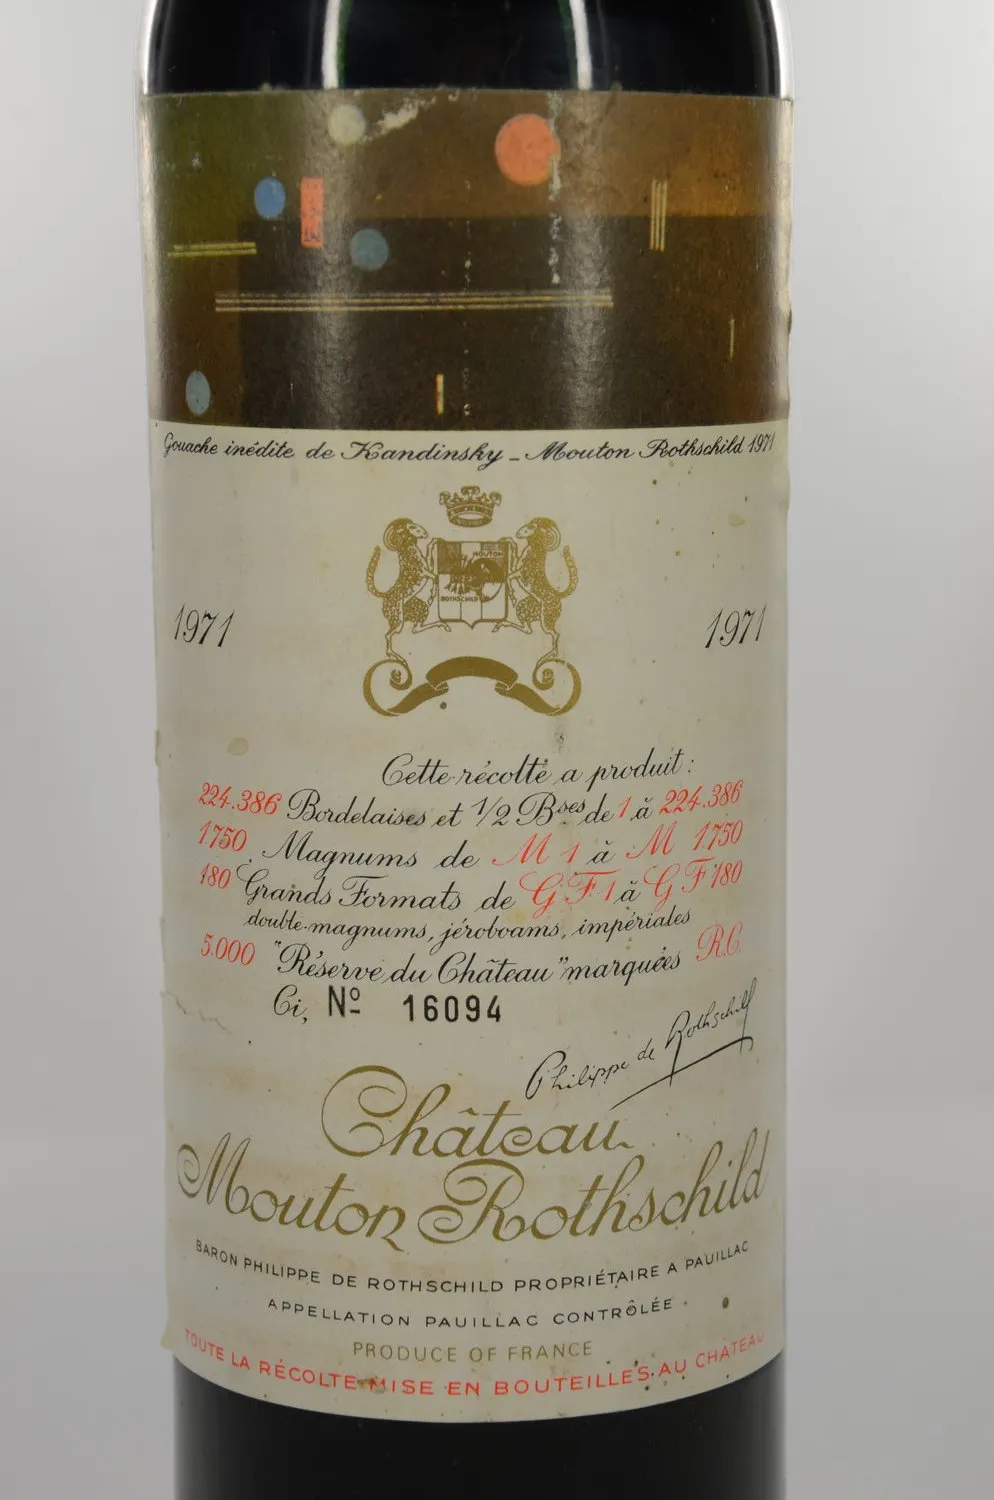 Gouache inédite de Kandinsky - Mouton Rothschild 1971
MOUTON
ROTHSCHILD
1971 1971
Cette récolte a produit:
224.386 Bordelaises et 1/2 Bses de 1 à 224.386
1750 Magnums de M 1 à M 1750
180 Grands Formats de G F 1 à G F 180
double-magnums, jéroboams, impériales
5.000 "Réserve du Château" marquées R.C.
Ci, Nº 16094
Philippe de Rothschild
Château
Mouton Rothschild
BARON PHILIPPE DE ROTHSCHILD PROPRIÉTAIRE A PAUILLAC
APPELLATION PAUILLAC CONTRÔLÉE
PRODUCE OF FRANCE
TOUTE LA RÉCOLTE MISE EN BOUTEILLES AU CHÂTEAU